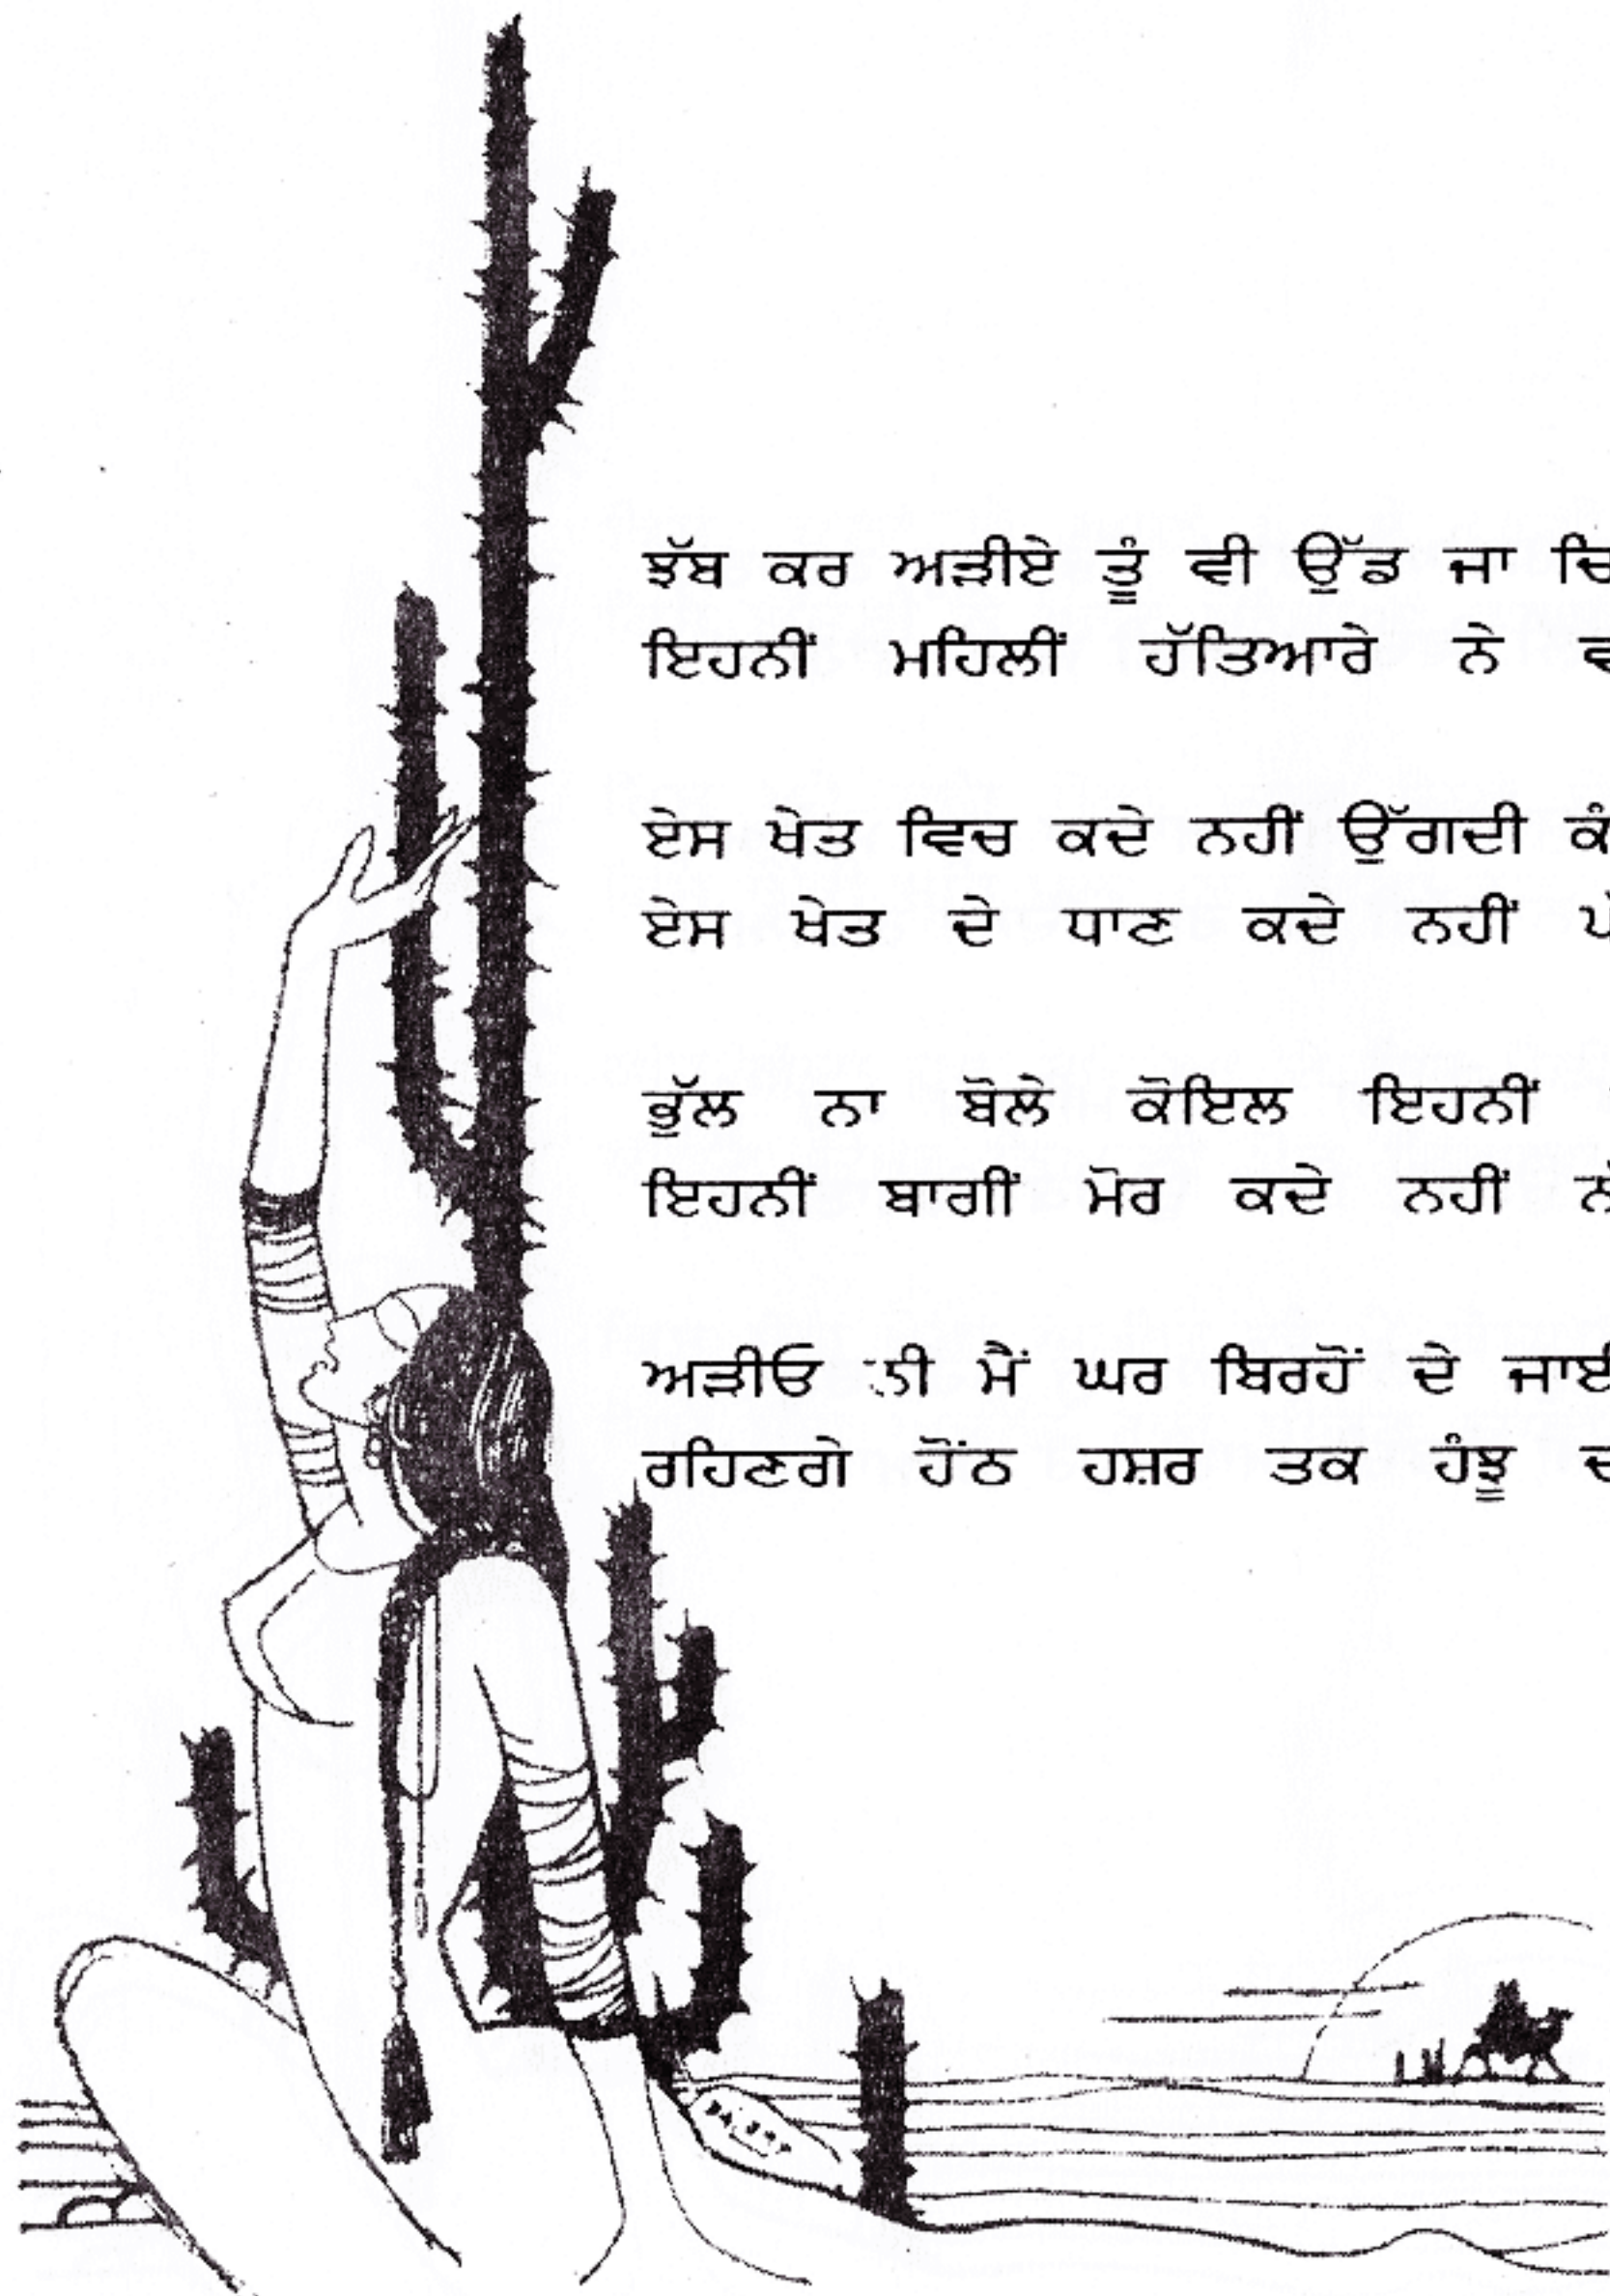 ਝੱਬ ਕਰ ਅੜੀਏ ਤੂੰ ਵੀ ਉੱਡ ਜਾ
ਇਹਨੀਂ ਮਹਿਲੀਂ ਹੱਤਿਆਰੇ ਨੇ
ਏਸ ਖੇਤ ਵਿਚ ਕਦੇ ਨਹੀਂ ਉੱਗਦੀ
ਏਸ ਖੇਤ ਦੇ ਧਾਣ ਕਦੇ ਨਹੀਂ
ਭੁੱਲ ਨਾ ਬੋਲੇ ਕੋਇਲ ਇਹਨੀਂ
ਇਹਨੀਂ ਬਾਗੀਂ ਮੋਰ ਕਦੇ ਨਹੀਂ
ਅੜੀਓ ਨੀ ਮੈਂ ਘਰ ਬਿਰਹੋਂ ਦੇ
ਰਹਿਣਗੇ ਹੋਂਠ ਹਸ਼ਰ ਤਕ ਹੰਝੂ